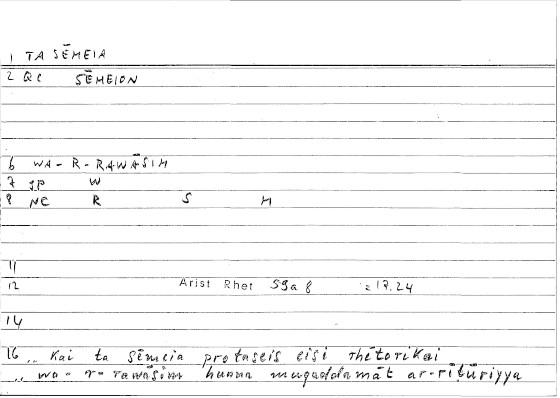 1 TA SĒMEIA
2 QC SĒMEION
6 WA - R - RAWĀSIM
7 JP W
8 NC R S M
11
12 Arist Rhet 59a8 = 17.24
14
16 „ Kai ta sēmeia protaseis eisi rhētorikai
„ wa - r - rawāsim hunna muqaddamāt ar-rīṭūriyya